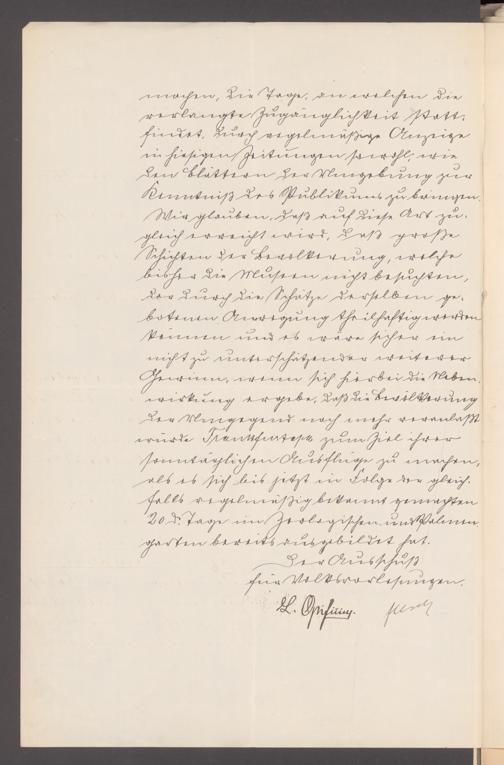 machen, die Tage, an welchen die
verlangte Zugänglichkeit statt-
findet, durch regelmäßige Anzeige
in hiesigen Zeitungen sowohl, wie
den Blättern der Umgebung zur
Kenntniß des Publikums zu bringen.
Wir glauben, daß auf diese Art zu-
gleich erreicht wird, daß große
Schichten der Bevölkerung, welche
bisher die Museen nicht besuchten,
der durch die Schätze derselben ge-
botenen Anregung theilhaftig werden
können und es wäre sicher ein
nicht zu unterschätzender weiterer
Gewinn, wenn sich hierbei die Neben-
wirkung ergebe, daß die Bevölkerung
der Umgegend noch mehr veranlaßt
würde Frankfurt zum Ziel ihrer
sonntäglichen Ausflüge zu machen,
als es sich bis jetzt in Folge der gleich-
falls regelmäßig bekannt gemachten
20 d. Tage im Zoologischen und Palmen-
garten bereits ausgebildet hat.
Der Ausschuß
für Volksvorlesungen.
L. Opificius.